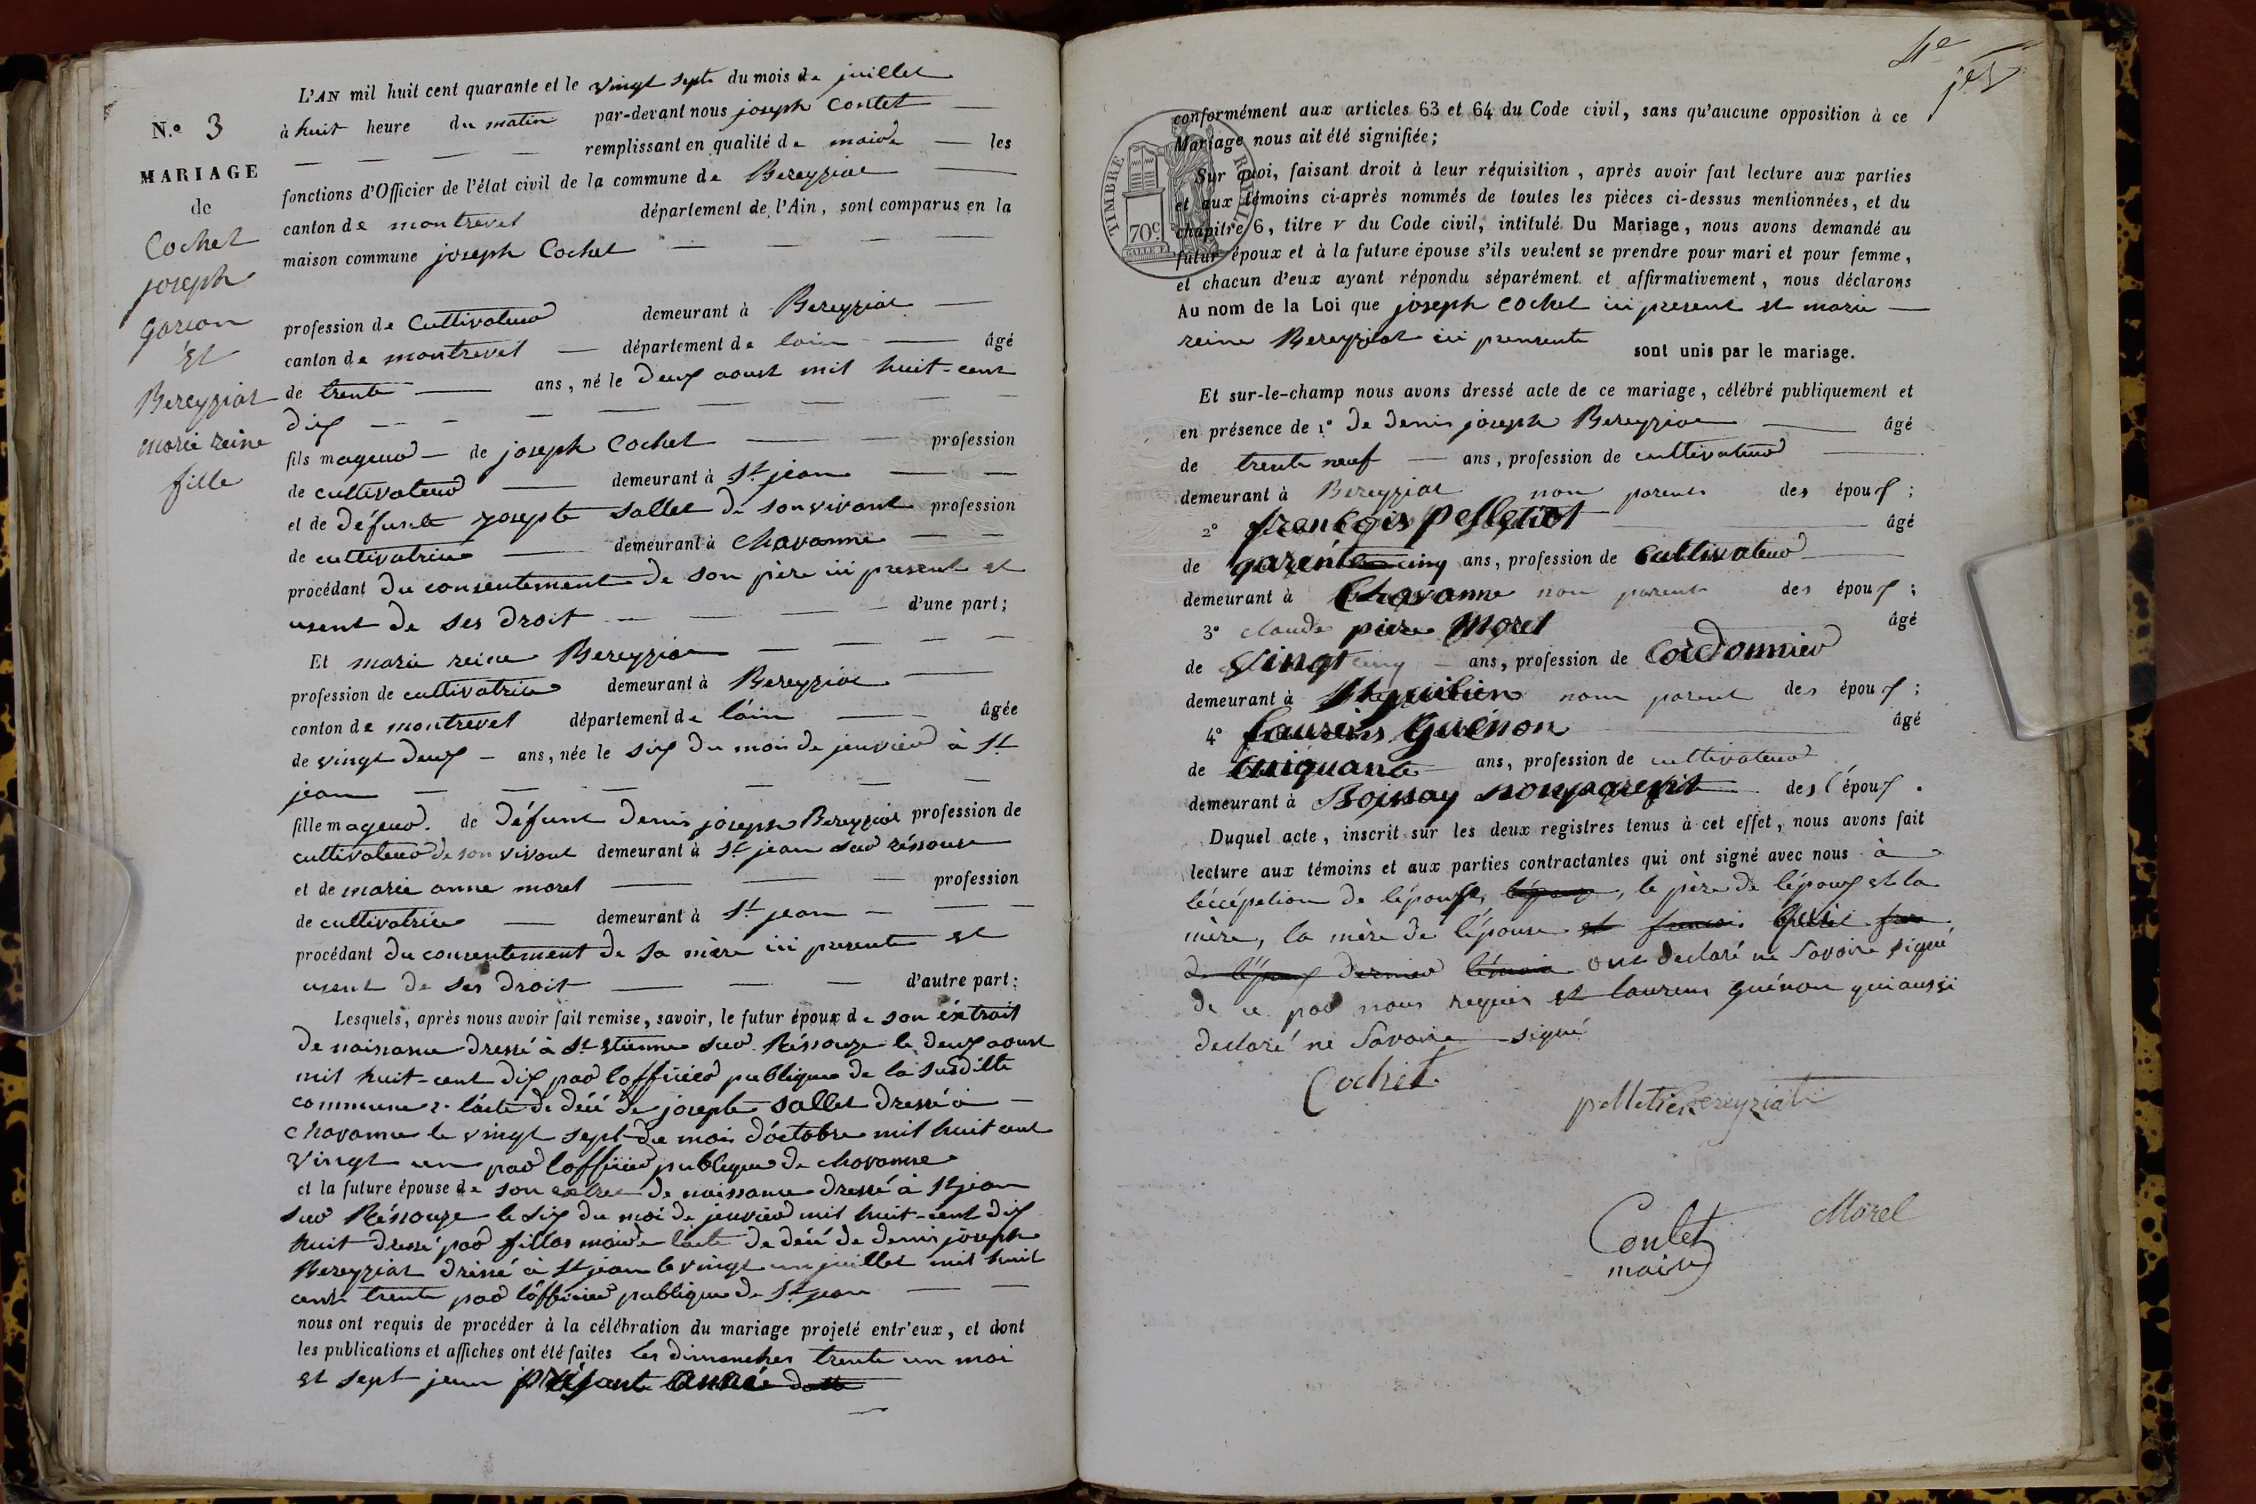 L'AN mil huit cent quarante et le vingt sept du mois de juillet
N.o 3
à huit heure du matin par-devant nous joseph Coulet
remplissant en qualité de maire les
MARIAGE
fonctions d'Officier de l'état civil de la commune de Bereyziat
de
canton de montrevel département de l'Ain, sont comparus en la
Cochet
maison commune joseph Cochet
joseph
garçon
profession de Cultivateur demeurant à Bereyziat
et
canton de montrevel département de lain âgé
Bereyziat
de trente ans, né le deux aoust mil huit-cent
dix
marie reine
fils mageur de joseph Cochet profession
fille
de cultivateur demeurant à St jean
et de défunte josephte sallet de son vivant profession
de cultivatrice demeurant à chavanne
procédant du consentement de son père ici present et
usent de ses droit d'une part;
Et marie reine Bereyziat
profession de cultivatrice demeurant à Bereyziat
canton de montrevel département de l'áin âgée
de vingt deux ans, née le six du mois de jenvier à St
jean
fille mageur. de défunt denis joseph Bereyziat profession de
cultivateur de son vivant demeurant à St jean sur réssouse
et de marie anne morel profession
de cultivatrice demeurant à St jean
procédant du consentement de sa mère ici presente et
usent de ses droit d'autre part:
Lesquels, après nous avoir fait remise, savoir, le futur époux de son éxtrait
de naissance dressé à St etienne sur Réssouze le deux aoust
mil huit-cent dix par lofficier publique de la susditte
commune 2. lácte de décé de josephte sallet dressé à
chavanne le vingt sept du mois d'óctobre mil huit cent
vingt un par lofficier publique de chavanne
et la future épouse de son extrei de naissance dressé à St jean
sur Réssouze le six du moi de jenvier mil huit-cent dix
huit dressé par fillos maire lácte de décé de denis joseph
Bereyziat dressé à St jean le vingt un juillet mil huit
cent trente par lófficier publique de St jean
nous ont requis de procéder à la célébration du mariage projeté entr'eux, et dont
les publications et affiches ont été faites les dimanches trente un mai
et sept juin présante année
conformément aux articles 63 et 64 du Code civil, sans qu'aucune opposition à ce
Mariage nous ait été signifiée;
TIMBRE ROYAL
70c.
Sur quoi, faisant droit à leur réquisition, après avoir fait lecture aux parties
et aux témoins ci-après nommés de toutes les pièces ci-dessus mentionnées, et du
chapitre 6, titre v du Code civil, intitulé Du Mariage, nous avons demandé au
futur époux et à la future épouse s'ils veulent se prendre pour mari et pour femme,
et chacun d'eux ayant répondu séparément et affirmativement, nous déclarons
Au nom de la Loi que joseph Cochet ici present et marie
reine Bereyziat ici prensente sont unis par le mariage.
Et sur-le-champ nous avons dressé acte de ce mariage, célébré publiquement et
en présence de 1º de denis joseph Bereyziat âgé
de trente neuf ans, profession de cultivateur
demeurant à Bereyziat non parents des époux;
2º francois pelletier âgé
de qarente cinq ans, profession de cultivateur
demeurant à Chavanne non parent des époux;
3º claude piere Morel âgé
de vingt cinq ans, profession de Cordonnier
demeurant à St julien nom parent des époux;
4º laurens Guénon âgé
de cinquante ans, profession de cultivateur
demeurant à Boissay non parent des l'époux.
Duquel acte, inscrit sur les deux registres tenus à cet effet, nous avons fait
lecture aux témoins et aux parties contractantes qui ont signé avec nous à
léccéption de lépouse, le père de lépoux et la
mère, la mère de lépouse
dernier témoin ont declaré ne Savoire signé
de ce par nous requis et laurens guénon qui aussi
declaré ne Savoire signé
Cochet
pelletier Bereyziat
Coulet
maire
Morel